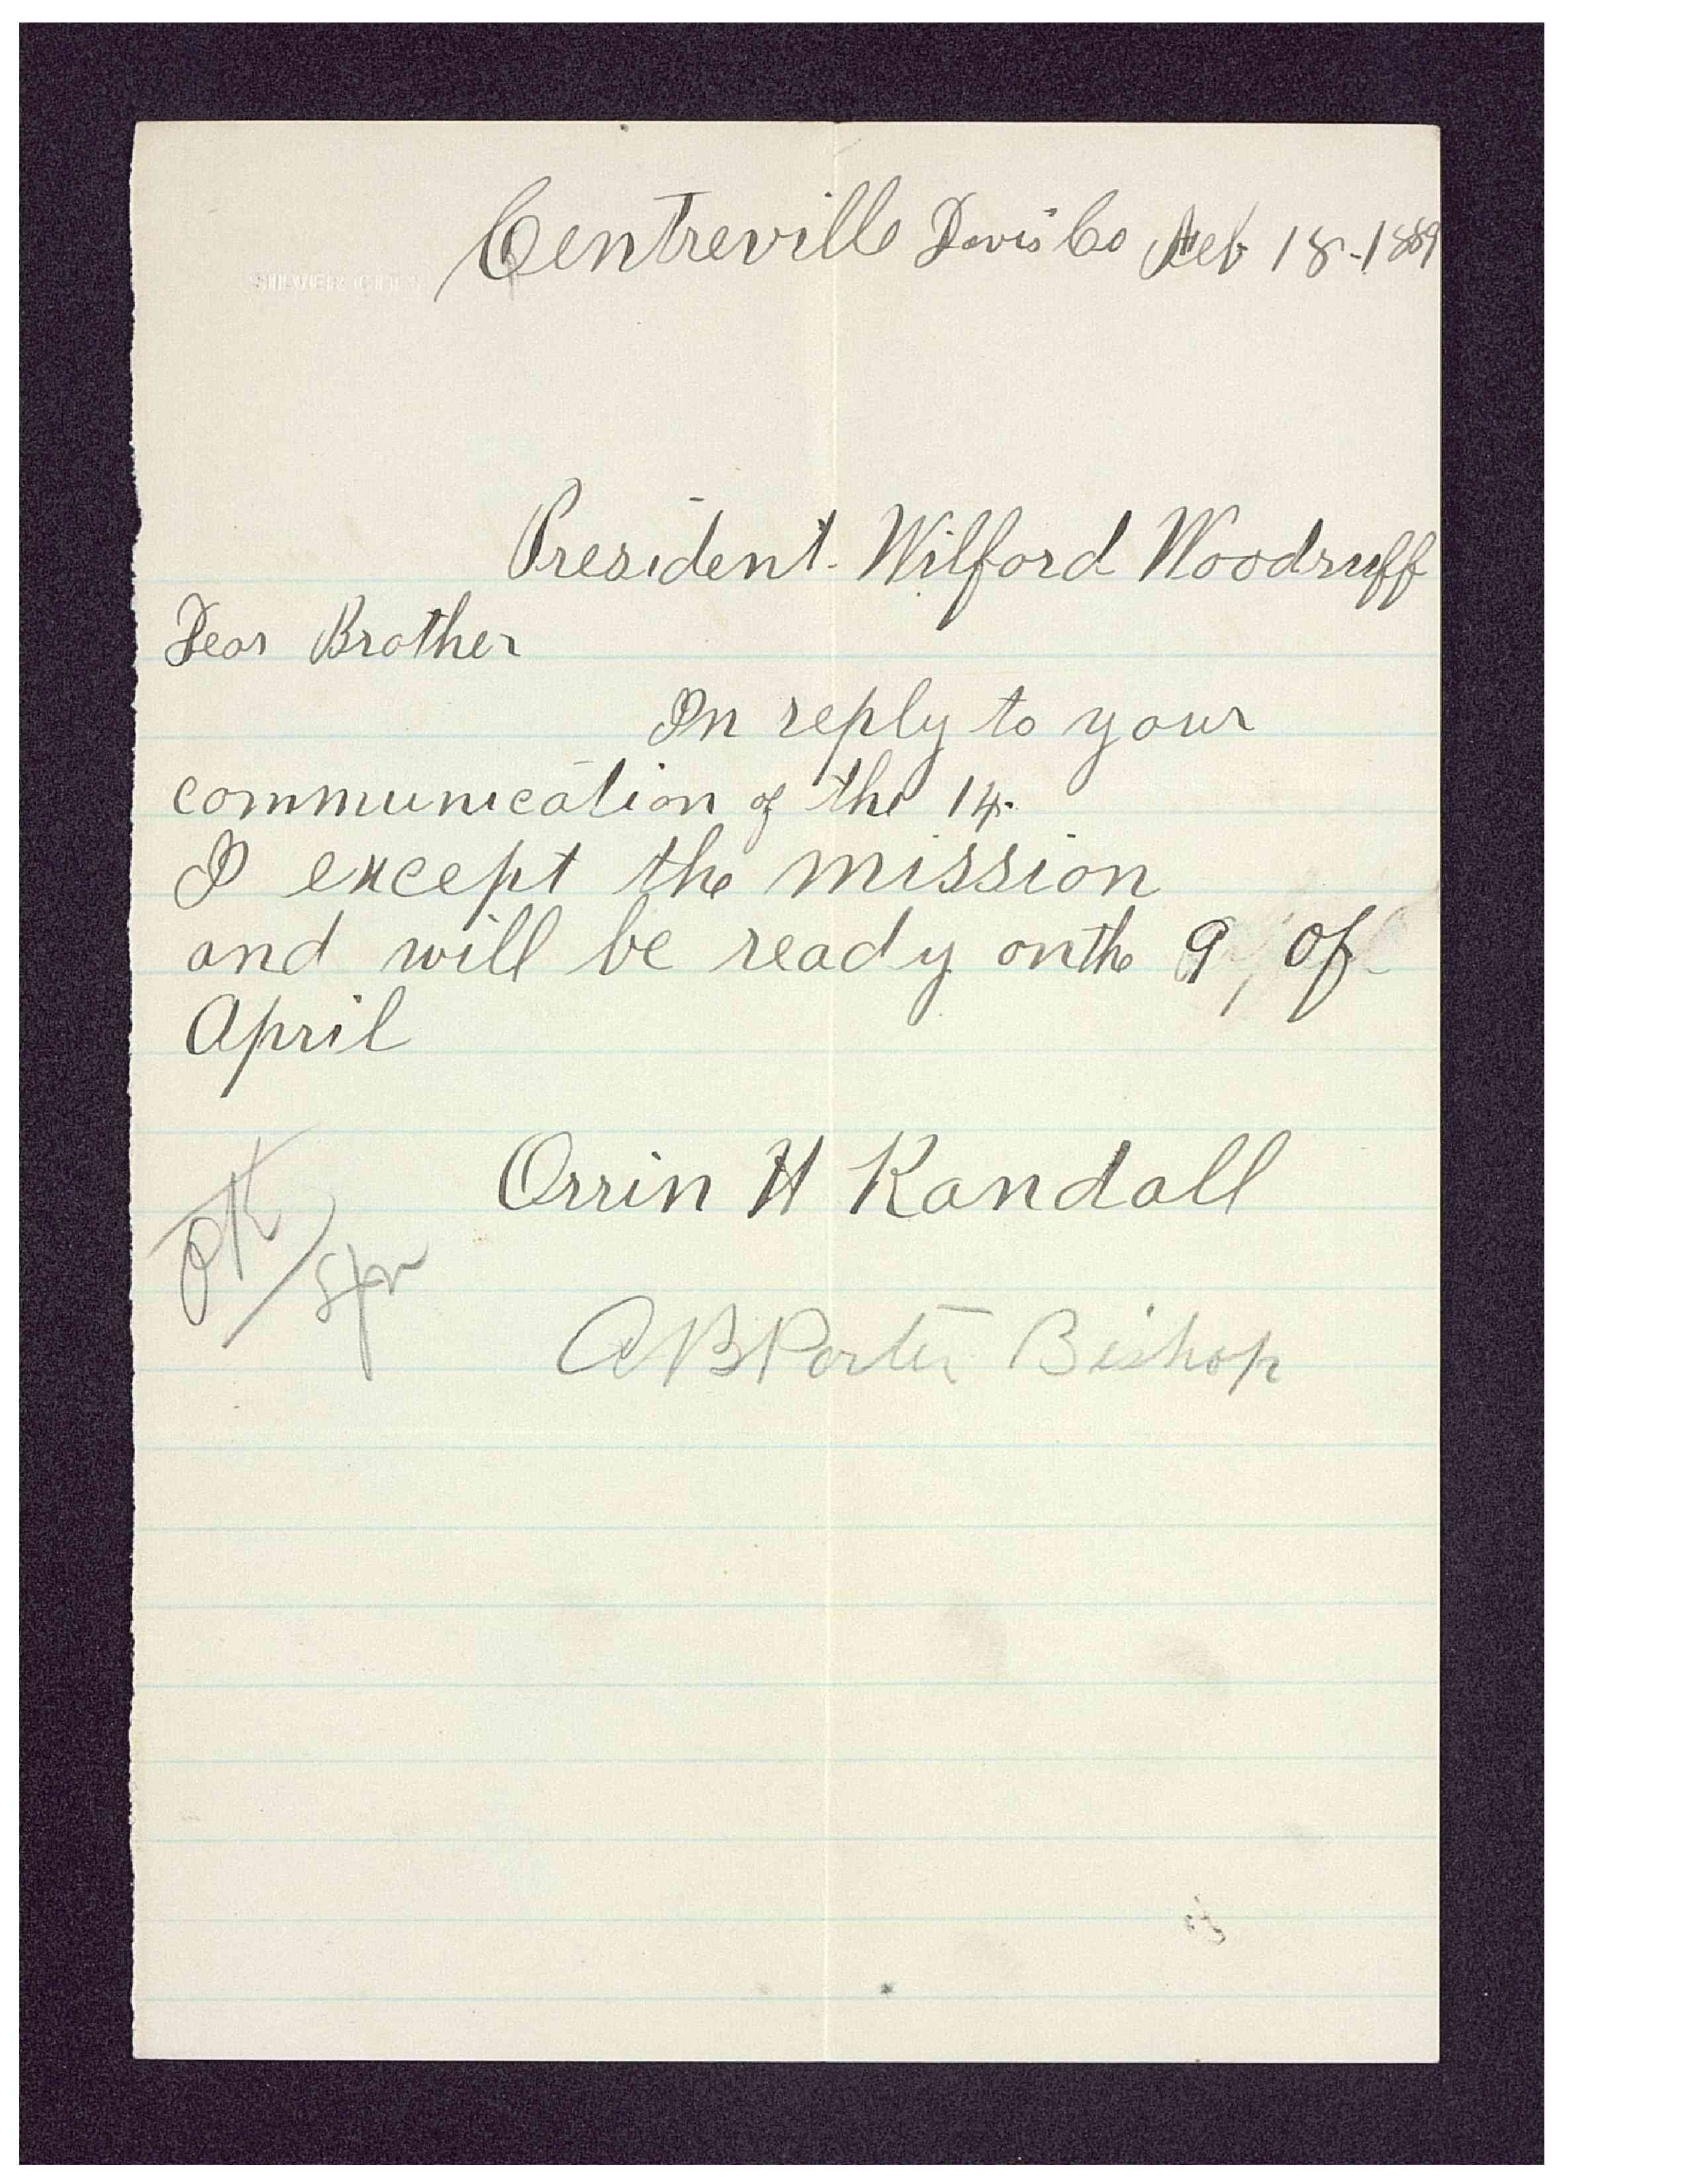 Centreville Davis Co Feb 18-1889
President. Wilford Woodruff
Dear Brother
In reply to your
communication of the 14.
I except the mission
and will be ready on the 9, of
April
Orrin H Randall
OK
A B Porter Bishop